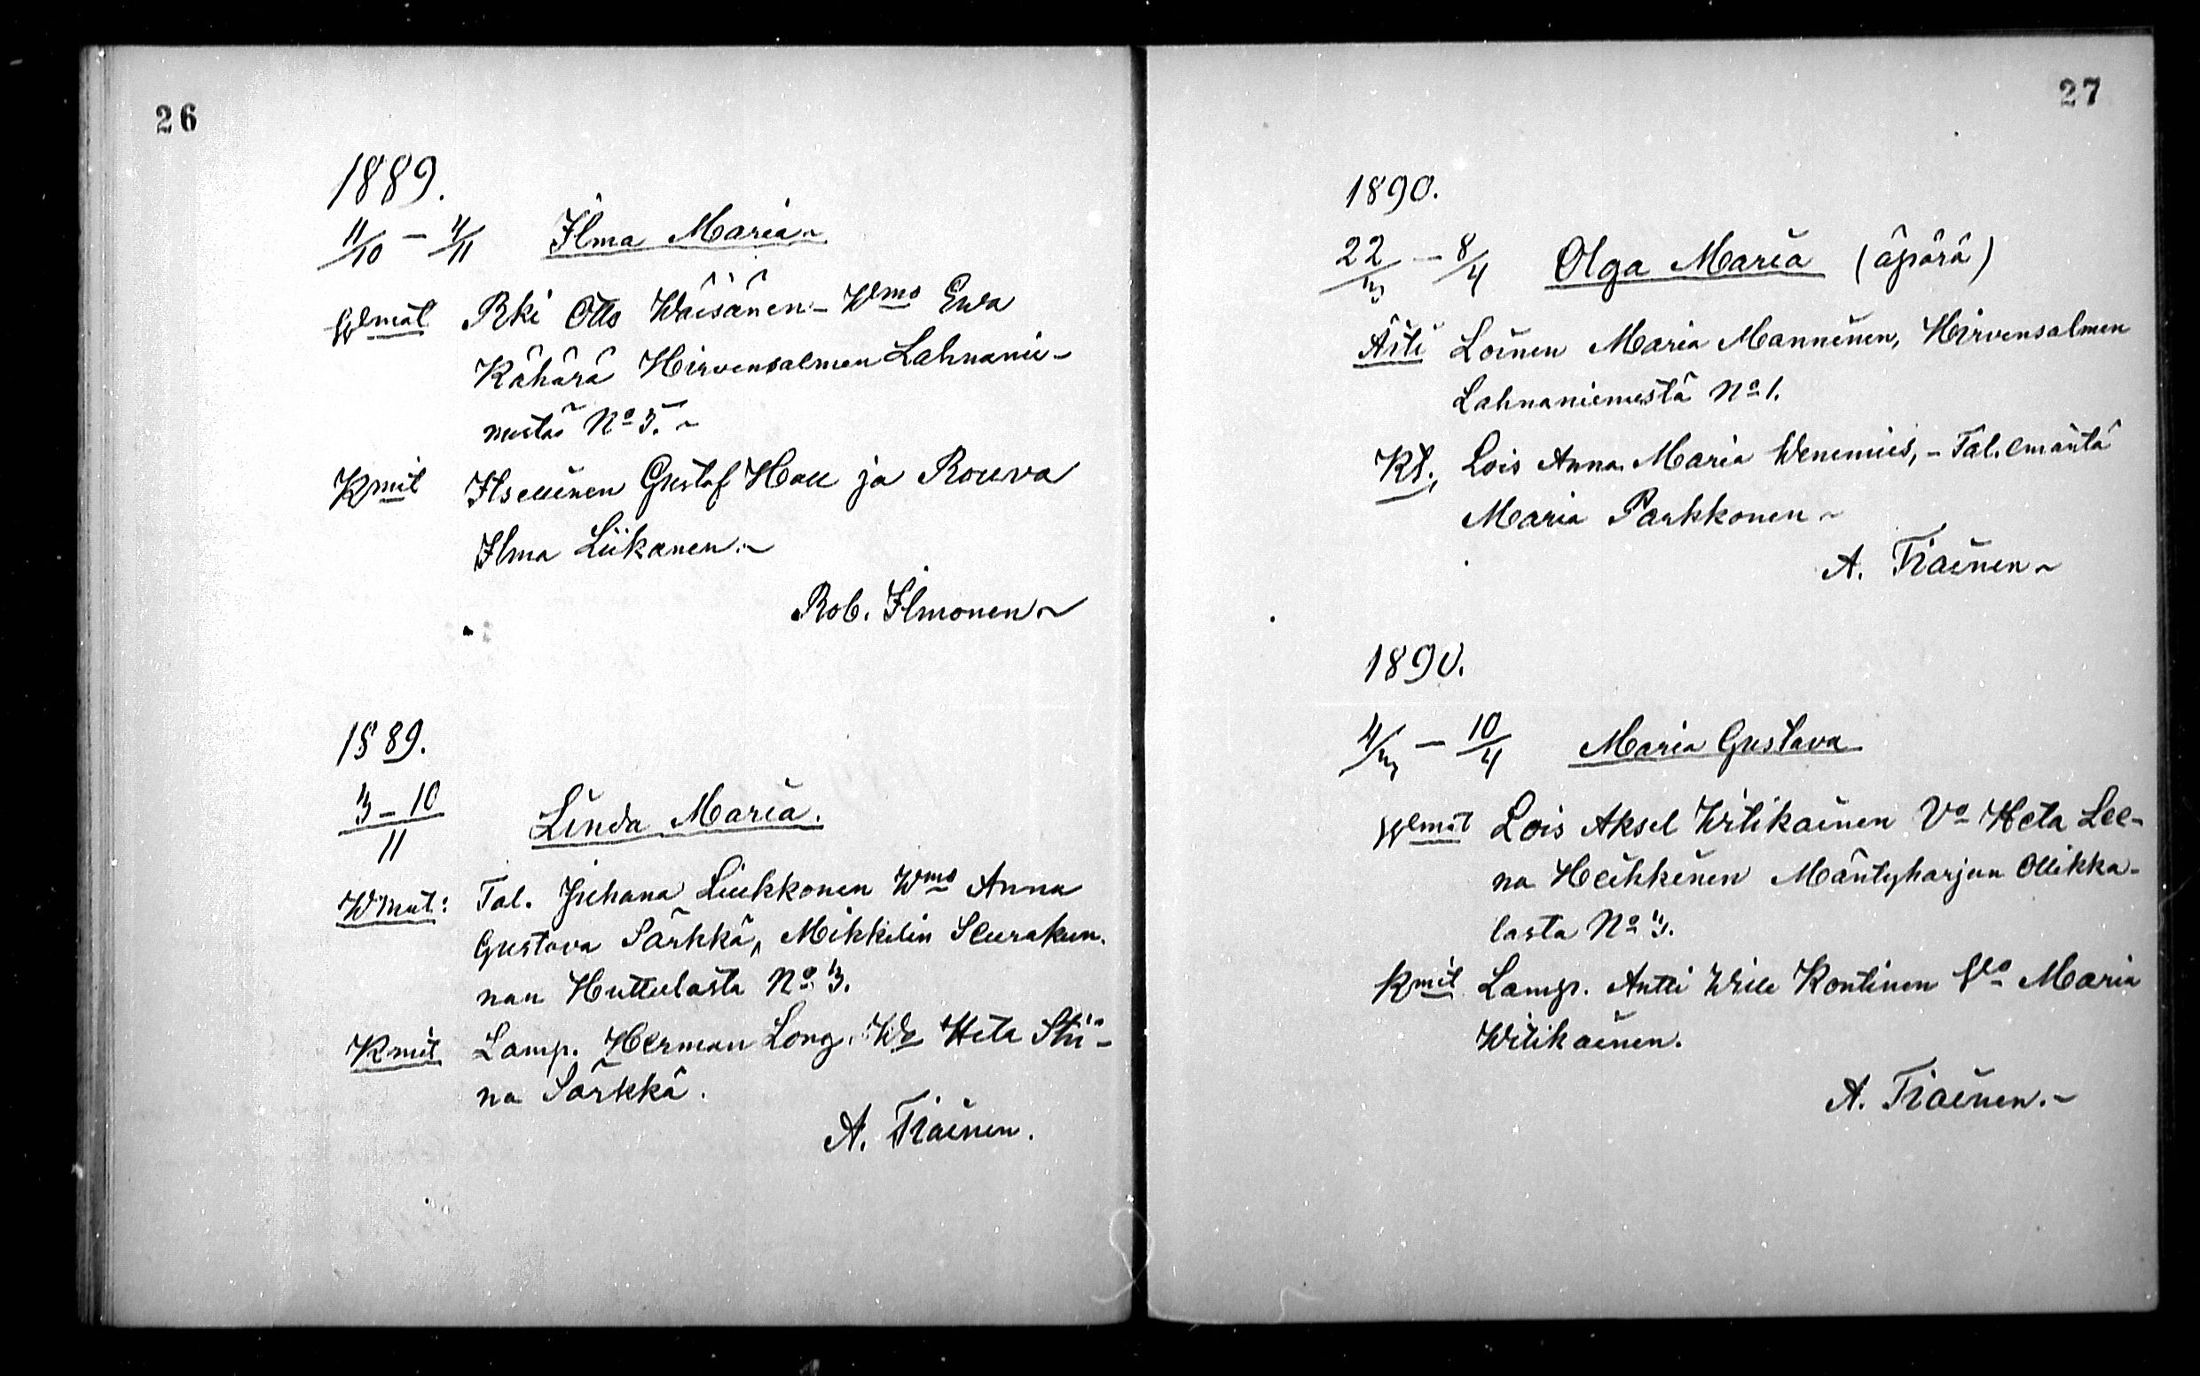 26
1889.
11/10 – 4/11 Ilma Maria
Wmat Rki Otto Wäisänen – Wmo Ewa
Kähärä Hirvensalmen Lahnanie-
mestä No 5.
Kmit Itsellinen Gustaf Hall ja Rouva
Ilma Liikanen.
Rob. Ilmonen
1889.
3 – 10/11 Linda Maria.
Wmat: Tal. Juhana Liukkonen Wmo Anna
Gustava Särkkä, Mikkelin Seurakun-
nan Huttulasta No 3.
Kmit Lamp. Herman Long, Wo Heta Stii-
na Särkkä.
A. Tiainen.
27
1890.
22/3 – 8/4 Olga Maria (äpärä)
Äiti Loinen Maria Manninen, Hirvensalmen
Lahnaniemestä No 1.
Kt. Lois Anna Maria Wenemies, – Tal. emäntä
Maria Parkkonen
A. Tiainen
1890.
4/3 – 10/4 Maria Gustava
Wmat Lois Aksel Witikainen Vo Heta Lee-
na Heikkinen Mäntyharjun Ollikka-
lasta No 3.
Kmit Lamp. Antti Wille Kontinen Vo Maria
Witikainen.
A. Tiainen.